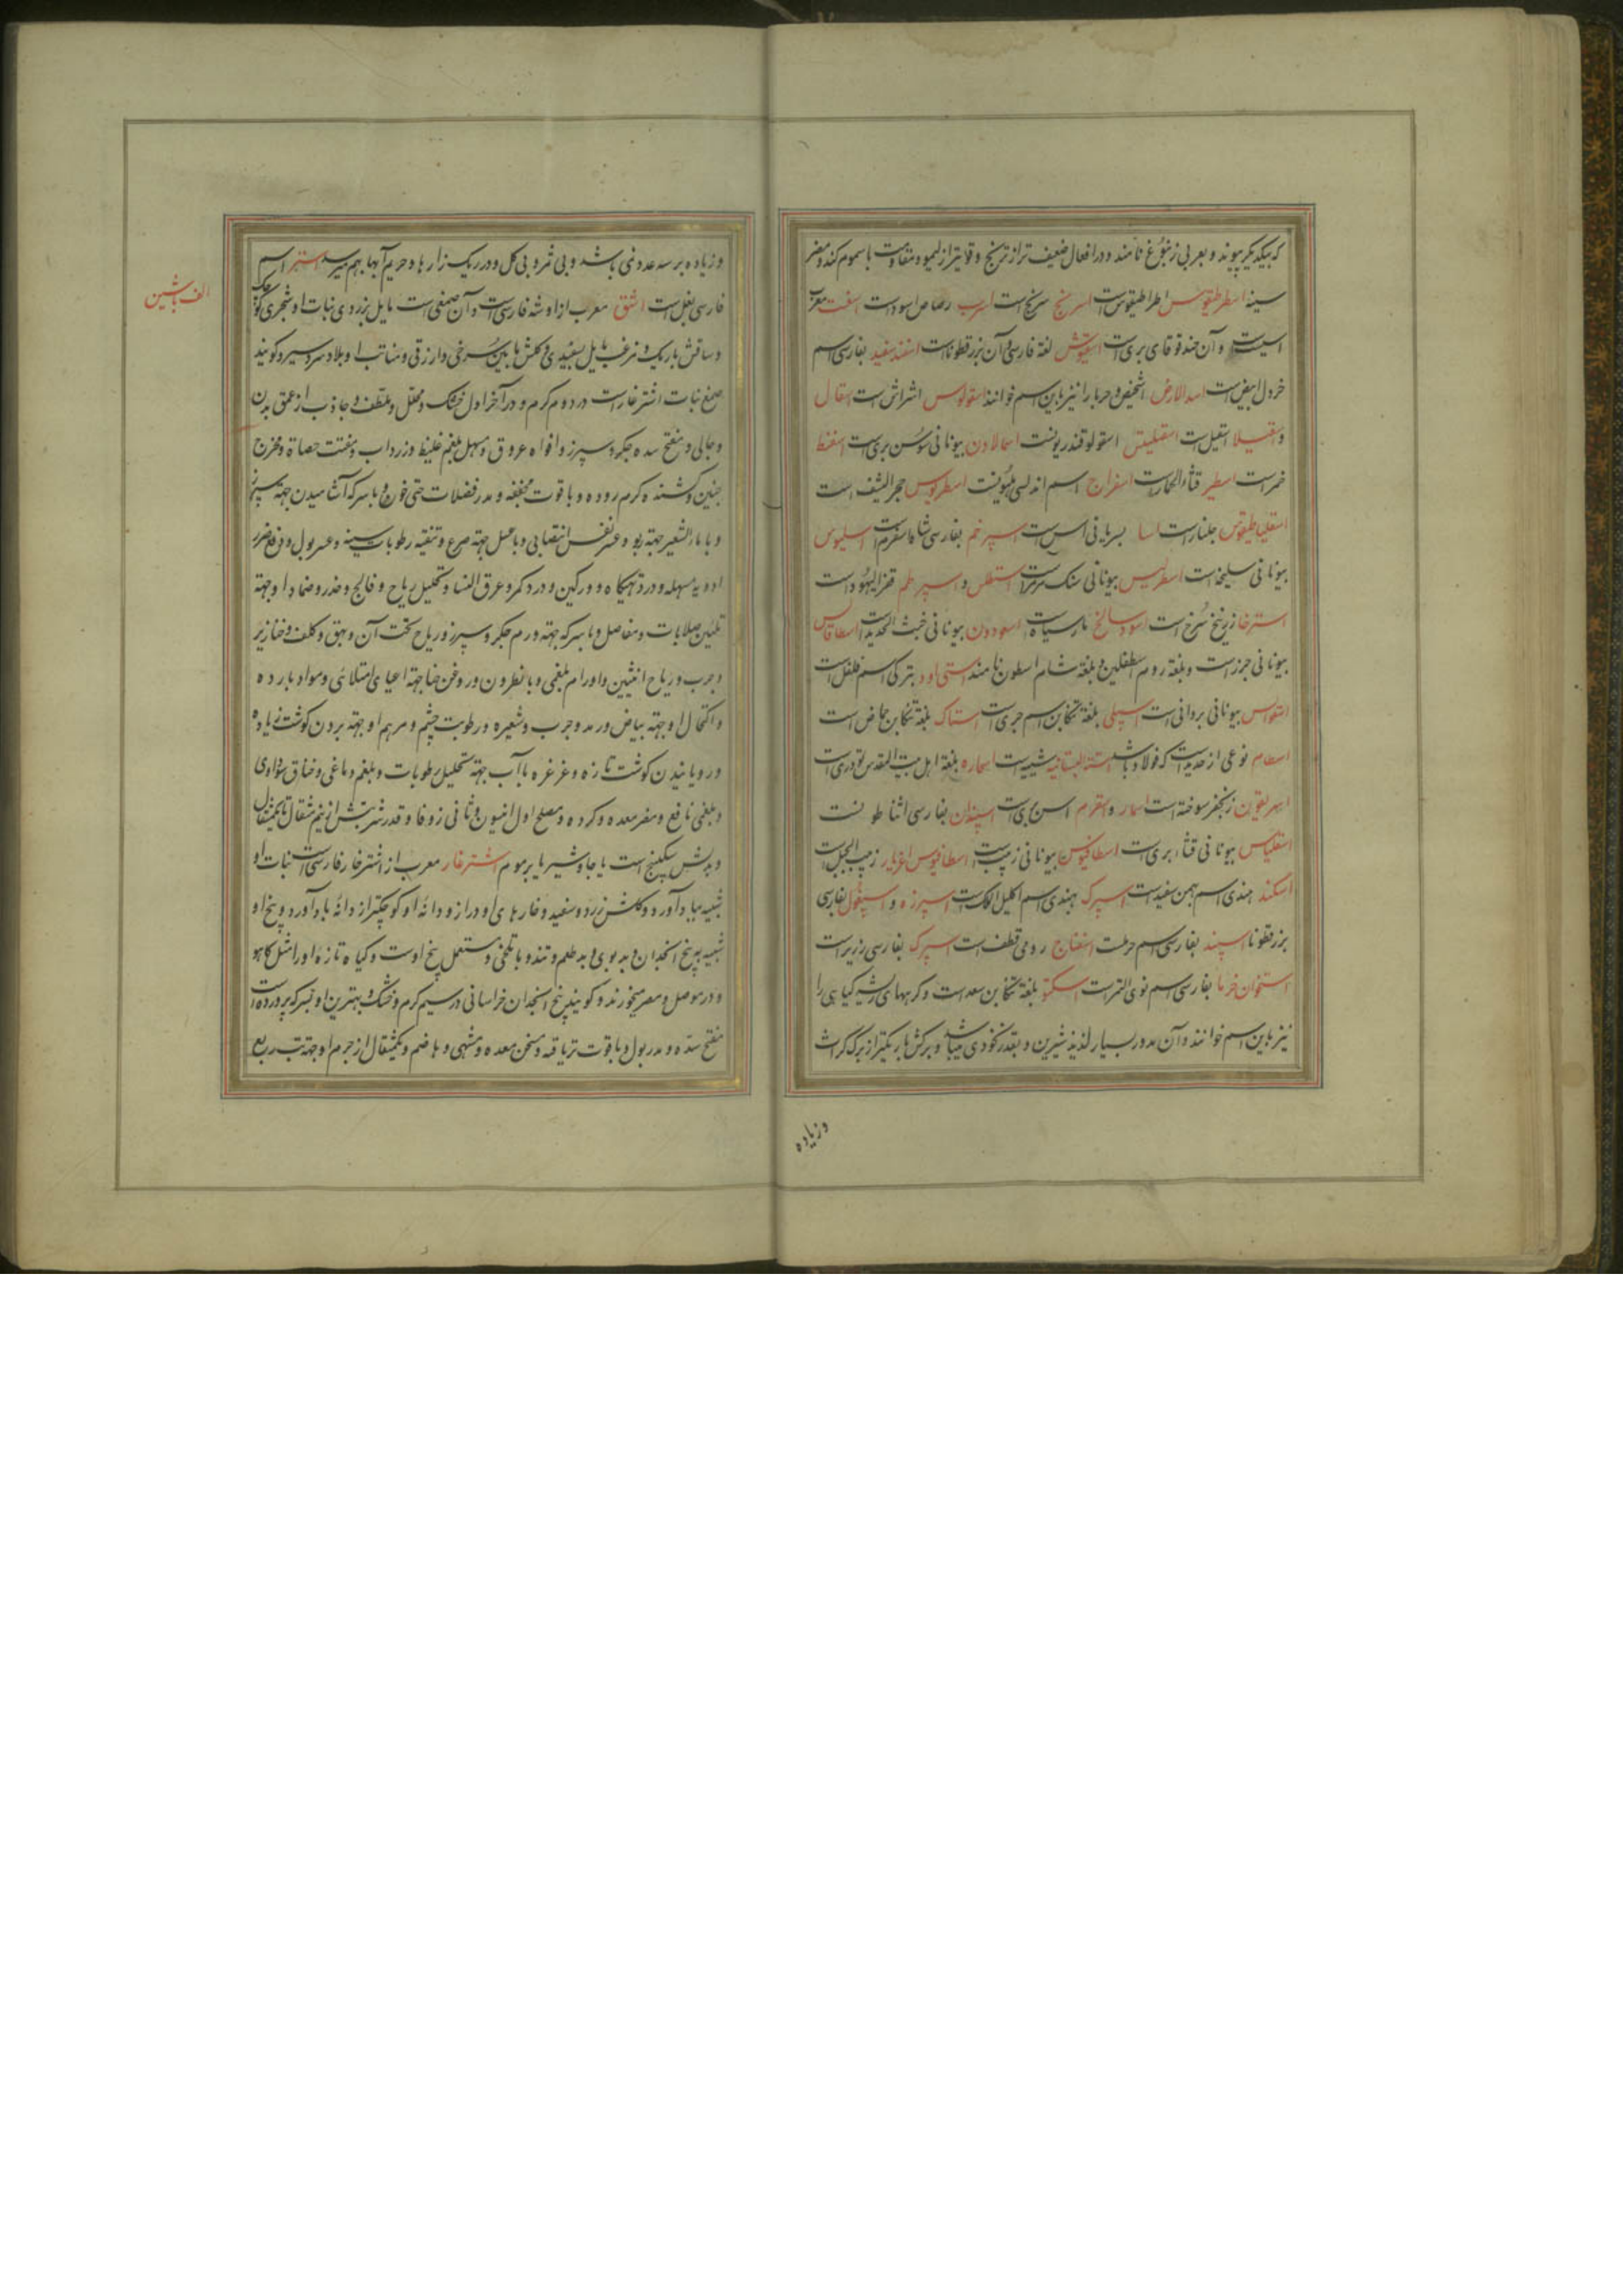 که بیکدیگر پیوند و بعربی زنبوع نامند و در افعال ضعیف تر از ترنج و قویتر از لیمو و مقاومت با سموم کند و مضر
سینه اسطرطیقوس اطراطیقوس است اسرنج سرنج است اسرب رصاص اسود است اسفست معرب
اسپست و آن حندقوقای بری است اسفیوش لغة فارسی و آن بزرقطونا است اسفند سفید بفارسی اسم
خردل ابیض است اسد الارض اشخیص و حربا را نیز باین اسم خوانند اسقولوس اشراش است اسقال
و اسقیلا اسقیل است اسقلینس اسقولوقندریونست اسمالادن بیونانی سوسن بری است اسفنط
خمر است اسطیر قثاء الحمار است اسفراج اسم اندلسی هلیونست اسطریوس حجر الشف است
جلنار است اسا بسریانی آس است اسپرغم بفارسی شاهسفرم است اسلیوس
بیونانی سلیخه است اسطرلیس بیونانی سنک مرمر است اسقطس و اسپرطم قفر الیهود است
استرخا زرنیخ سرخ است اسود سالخ مار سیاه است اسعودون بیونانی خبث الحدید است اسطافالس
بیونانی جزر است و بلغة روم اسطفلین و بلغة شام اسطون نامند استی اود بترکی اسم فلفل است
بیونانی بردانی است اسپلی بلغة تنکابن اسم جری است استاک بلغة تنکابن حماض است
اسطام نوعی از حدید است که فولاد باشد اسنة البستانیه شیبه است اسحاره بلغة اهل بیت المقدس تودری است
اسریقون زنجفر سوخته است اسمار و اسقرم آس بری است اسپندان بفارسی
اسقلیاس بیونانی قثاء بری است اسطافیوس بیونانی زبیب است اسطافیوس اغریار زبیب الجبل است
اسکند هندی اسم بهمن سفید است اسپرک بهندی اسم اکلیل الملک است اسپرزه و اسپغول بفارسی
بزرقطونا اسپند بفارسی اسم حرملست اسفناج رومی قطف است اسپرک بفارسی زریر است
استخوان خرما بفارسی اسم نوی التمر است اسکتو بلغة تنکابن سعد است و کربهای رشیر کیاهی را
نیز باین اسم خوانند و آن مدور بسیار لذیذ شیرین و بقدر نخودی میباشد و برکش باریکتر از برک کراث
وزیاده
وزیاده بر سه عدد نمی باشد و بی ثمر و بی کل و در ریک زارها و حریم آبها بهم میرسد استر اسم
الف با شین
فارسی بغل است اشق معرب از اوشه فارسی است و آن صمغی است مایل بزردی نبات او شجری کوچک
و ساقش باریک و مزغب مایل بسفیدی و کلش ما بین سرخی و ازرقی و منابت او بلاد سردسیر و کویند
صمغ نبات اشترغاز است در دوم کرم و در آخر اول خشک و محلل و ملطف و جاذب از عمق بدن
و جالی و مفتح سده جکر و سپرز و افواه عروق و مسهل بلغم غلیظ و زرداب و مفتت حصاة و مخرج
جنین و کشنده کرم روده و با قوت مجففه و مدر فضلات حتی خون و با سرکه آشامیدن جهة سپرز
و با ماء الشعیر جهة ربو و عسر نفس انتصابی و با عسل جهة صرع و تنقیه رطوبات سینه و عسر بول و دفع ضرر
ادویه مسهله و درد تهیکاه و ورکین و درد کمر و عرق النسا و تحلیل ریاح و فالج و خدر و ضماد او جهة
تلیین صلابات و مفاصل و با سرکه جهة ورم جکر و سپرز و ریاح تحت آن و بهق و کلف و خنازیر
و جرب و ریاح انثیین و اورام بلغمی و با نطرون و روغن حنا جهة اعیای امتلائی و مواد بارده
و اکتحال او جهة بیاض و رمد و جرب و شعیره و رطوبت چشم و مرهم او جهة بردن کوشت زیاده
و رویانیدن کوشت تازه و غرغره با آب جهة تحلیل رطوبات و بلغم دماغی و خناق سوداوی
و بلغمی نافع و مضر معده و کرده و مصلح اول انیسون و ثانی زوفا و قدر شربتش از نیم مثقال تا یکمثقال
و بدلش سکبینج است یا جاوشیر یا برموم اشترغاز معرب از اشترخار فارسی است نبات او
شبیه ببادآورد و کلش زرد و سفید و خارهای او دراز و دانه او کوچکتر از دانه بادآورد و بیخ او
شبیه به بیخ انجدان و بدبوی و بدطعم و تند و با تلخی و مستعمل بیخ اوست و کیاه تازه او را مثل کاهو
و در موصل و مصر میخورند و کویند بیخ انجدان خراسانی در سیم کرم و خشک و بهترین او بسرکه پرورده است
مفتح سده و مدر بول و با قوت تریاقیه و مسخن معده و مشهی و هاضم و یکمثقال از جرم او جهة تب ربع